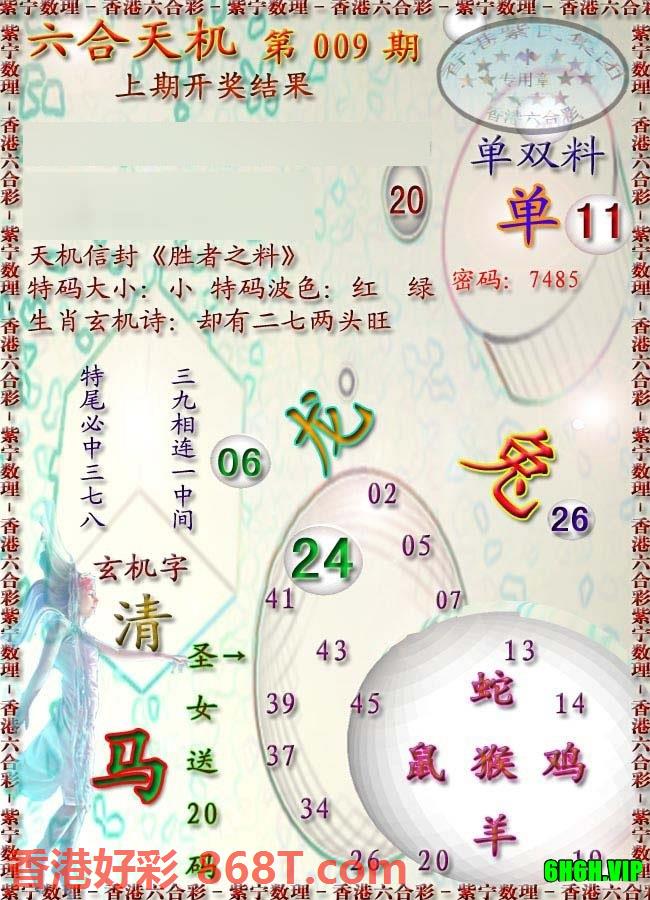 紫宁数理－香港六合彩－紫宁数理－香港六合彩－紫宁数理－香港六合彩－紫宁数理
六合天机 第 009 期
上期开奖结果
香港紫宁集团
专用章
香港六合彩
单双料
单 11
20
天机信封《胜者之料》
特码大小：小 特码波色：红 绿
密码：7485
生肖玄机诗：却有二七两头旺
三九相连一中间
特尾必中三七八
06
龙
兔
26
02
24
05
41
07
玄机字
清
43
13
圣女送20码
→
39
45
蛇
14
马
37
鼠 猴 鸡
34
羊
26
20
19
香港好彩 868T.com
6H6H.VIP
紫宁数理－香港六合彩－紫宁数理－香港六合彩－紫宁数理－香港六合彩－紫宁数理